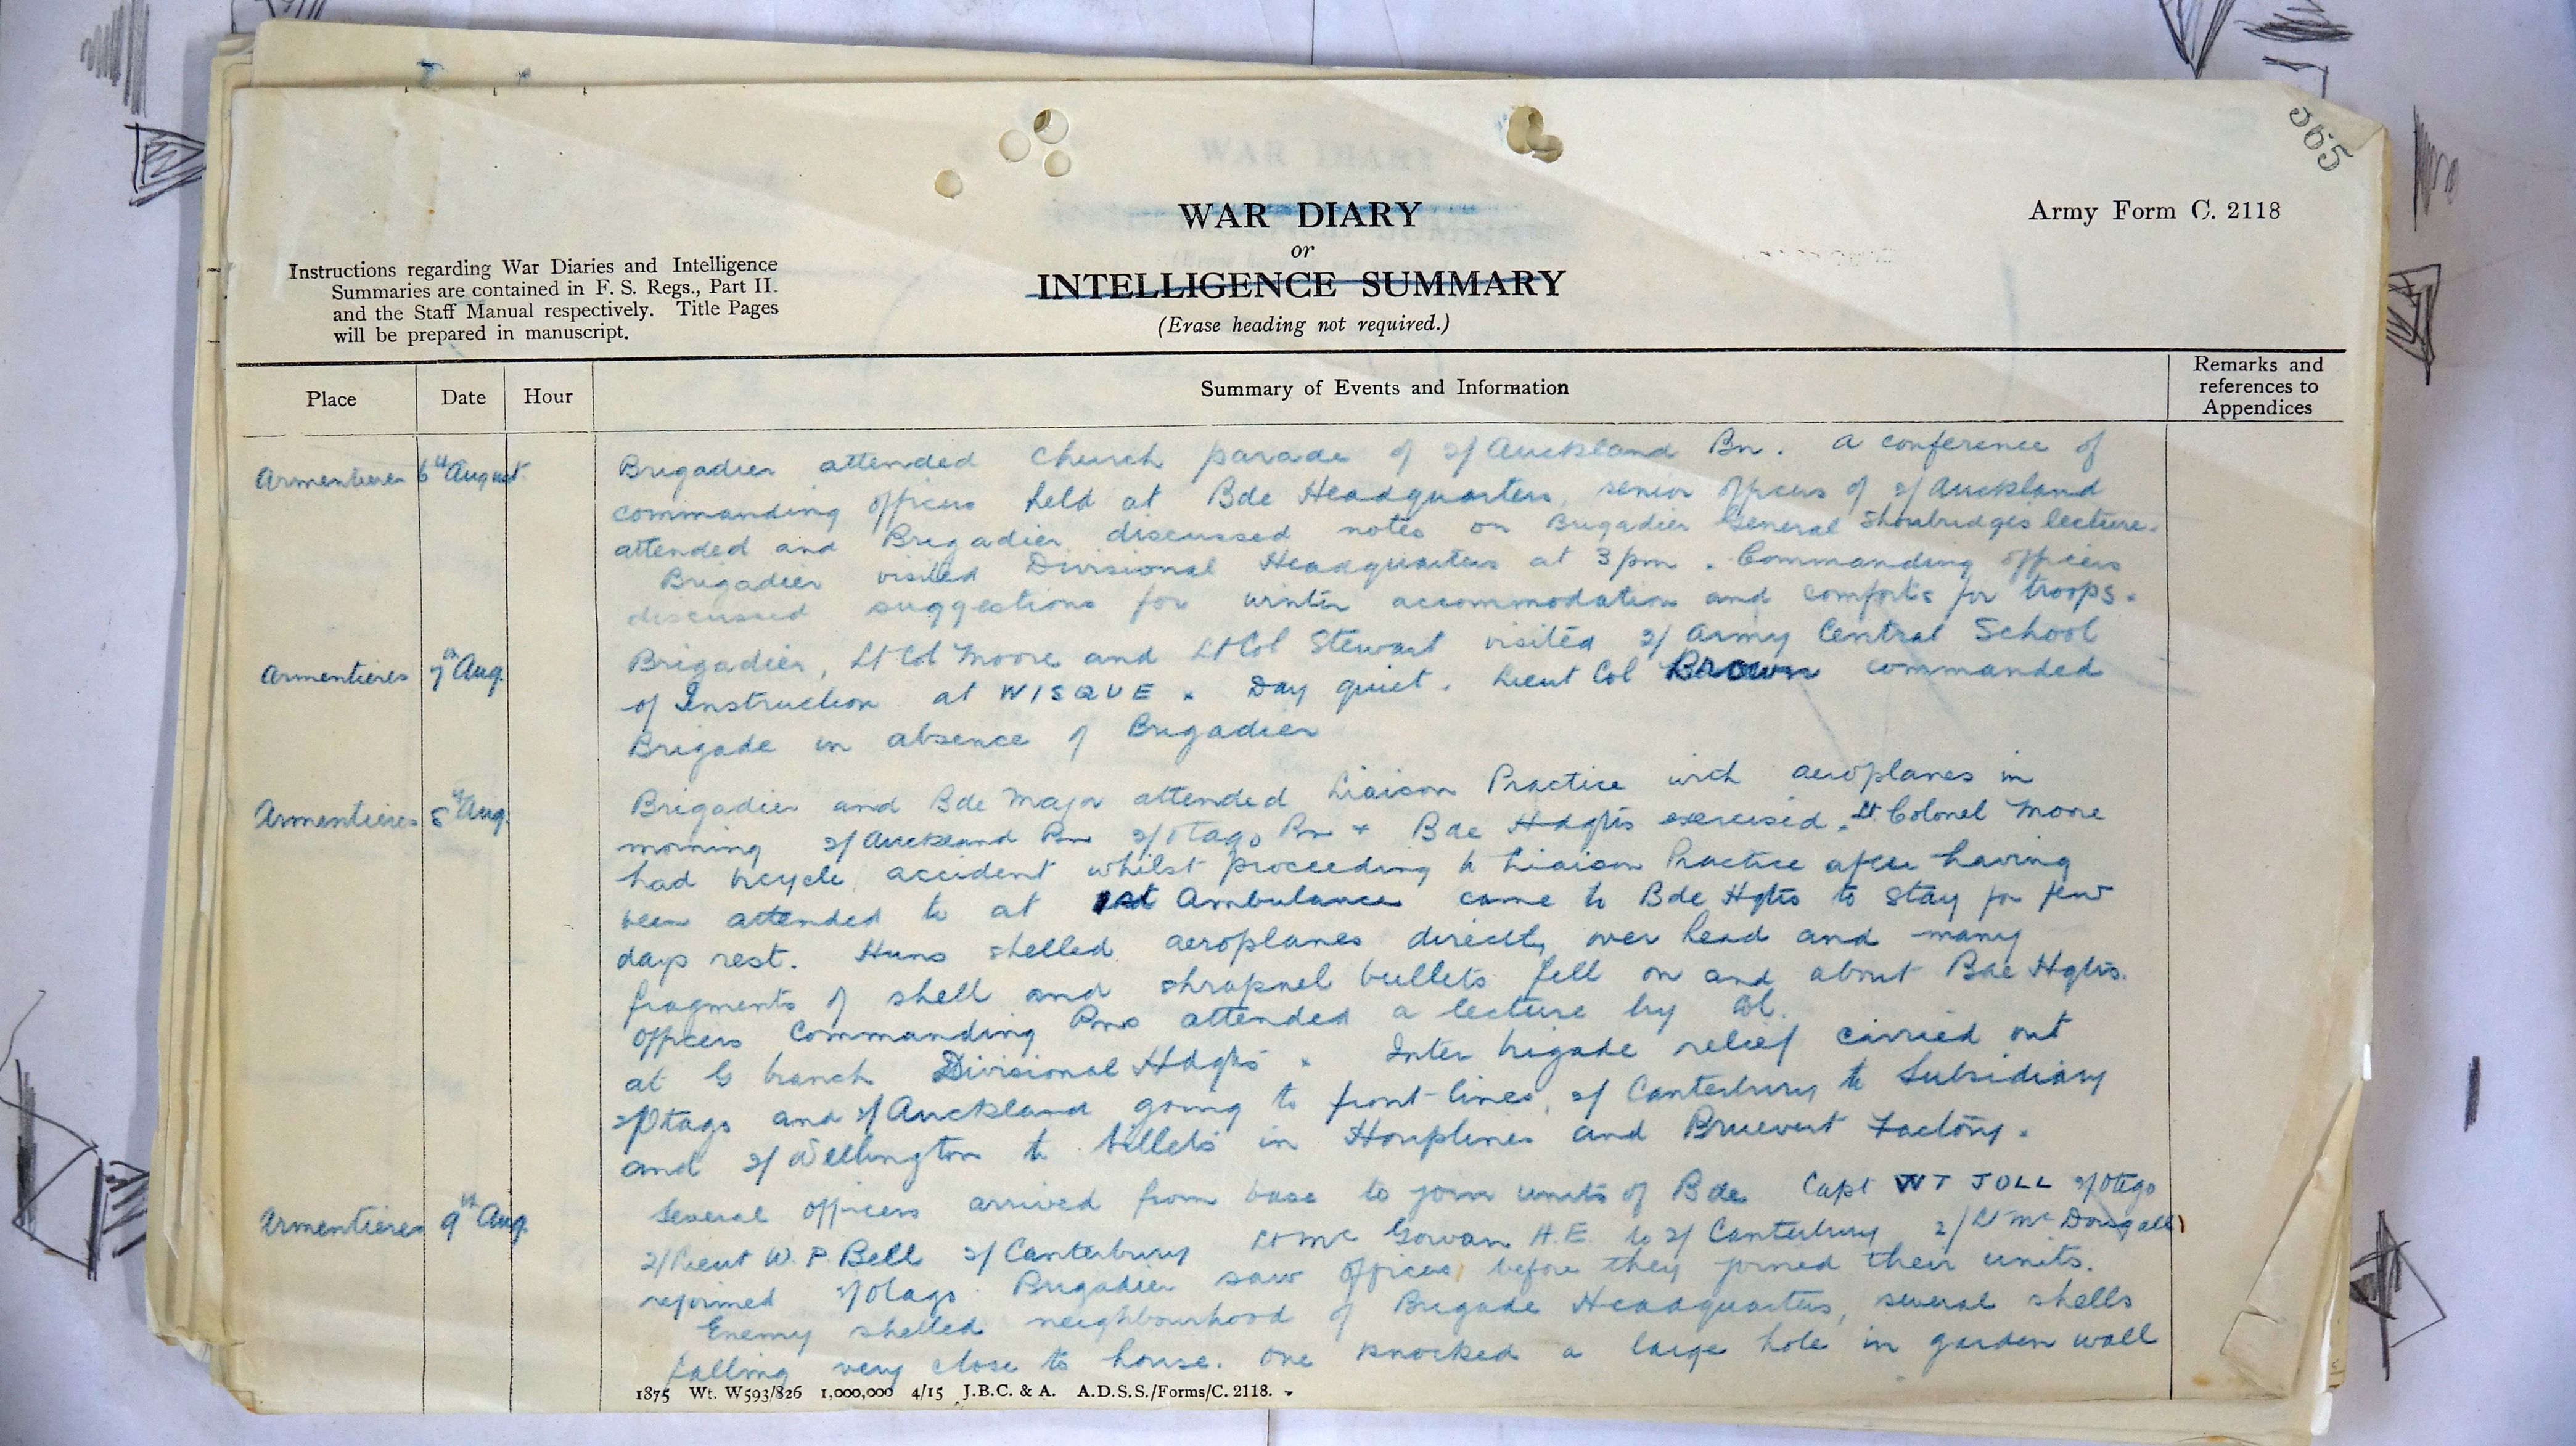 365
WAR DIARY
Army Form C. 2118
or
INTELLIGENCE SUMMARY
(Erase heading not required.)
Instructions regarding War Diaries and Intelligence
Summaries are contained in F. S. Regs., Part II.
and the Staff Manual respectively. Title Pages
will be prepared in manuscript.
Place Date Hour Summary of Events and Information Remarks and references to Appendices
Armentieres 6th August. Brigadier attended church parade of 2/Auckland Bn. A conference of
commanding officers held at Bde Headquarters, senior officers of 2/Auckland
attended and Brigadier discussed notes on Brigadier General Shoubridges lecture.
Brigadier visited Divisional Headquarters at 3pm. Commanding officers
discussed suggestions for winter accommodation and comforts for troops.
Armentieres 7th Aug. Brigadier, Lt Col Moore and Lt Col Stewart visited 2/ Army Central School
of Instruction at WISQUE. Day quiet. Lieut Col Brown commanded
Brigade in absence of Brigadier
Armentieres 8th Aug. Brigadier and Bde Major attended Liaison Practice with aeroplanes in
morning 2/Auckland Bn 2/Otago Bn + Bde Hdqtrs exercised. Lt. Colonel Moore
had bicycle accident whilst proceeding to Liaison Practice after having
been attended to at 1st Ambulance came to Bde Hqtrs to stay for few
days rest. Huns shelled aeroplanes directly over head and many
fragments of shell and shrapnel bullets fell on and about Bde Hqtrs.
Officers Commanding Bns attended a lecture by Col.
at G branch Divisional Hdqtrs. Inter brigade relief carried out
2/Otago and 2/Auckland going to front-lines, 2/ Canterbury to Subsidiary
and 2/ Wellington to billets in Houplines and Factory.
Armentieres 9th Aug. Several officers arrived from base to join units of Bde Capt WT JOLL 2/Otago
2/Lieut W. P. Bell 2/Canterbury Lt Mc Gowan H.E. to 2/ Canterbury 2/Lt Mc Dougall
rejoined 2/Otago. Brigadier saw officers before they joined their units.
Enemy shelled neighbourhood of Brigade Headquarters, several shells
falling very close to house. One knocked a large hole in garden wall
1875 Wt. W593/826 1,000,000 4/15 J.B.C. & A. A.D.S.S./Forms/C. 2118.